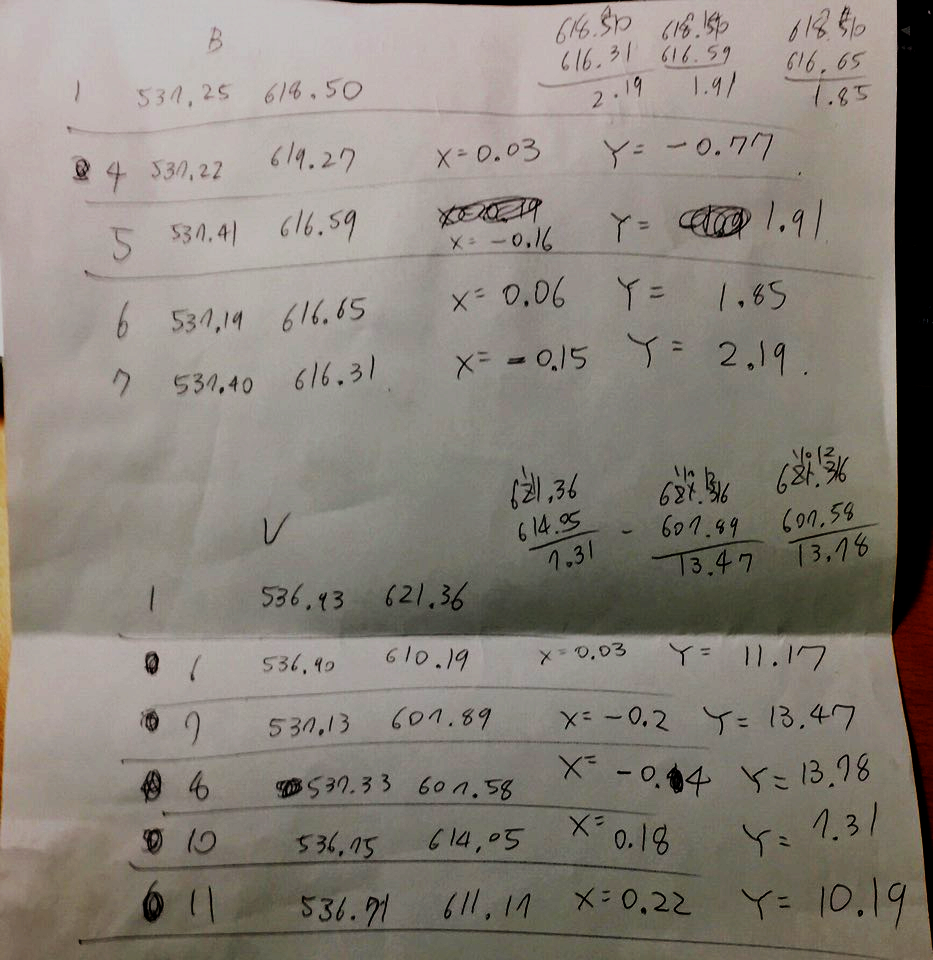 B
618.50 618.50 618.50
616.31 616.59 616.65
2.19 1.91 1.85
1 537.25 618.50
4 537.22 619.27 X=0.03 Y=-0.77
5 537.41 616.59 X=-0.16 Y= 1.91
6 537.19 616.65 X=0.06 Y= 1.85
7 537.40 616.31 X=-0.15 Y= 2.19
V
621.36 621.36 621.36
614.05 - 607.89 607.58
7.31 13.47 13.78
1 536.93 621.36
6 536.90 610.19 X=0.03 Y= 11.17
7 537.13 607.89 X=-0.2 Y= 13.47
8 537.33 607.58 X= -0.4 Y= 13.78
10 536.75 614.05 X= 0.18 Y= 7.31
11 536.71 611.17 X=0.22 Y= 10.19